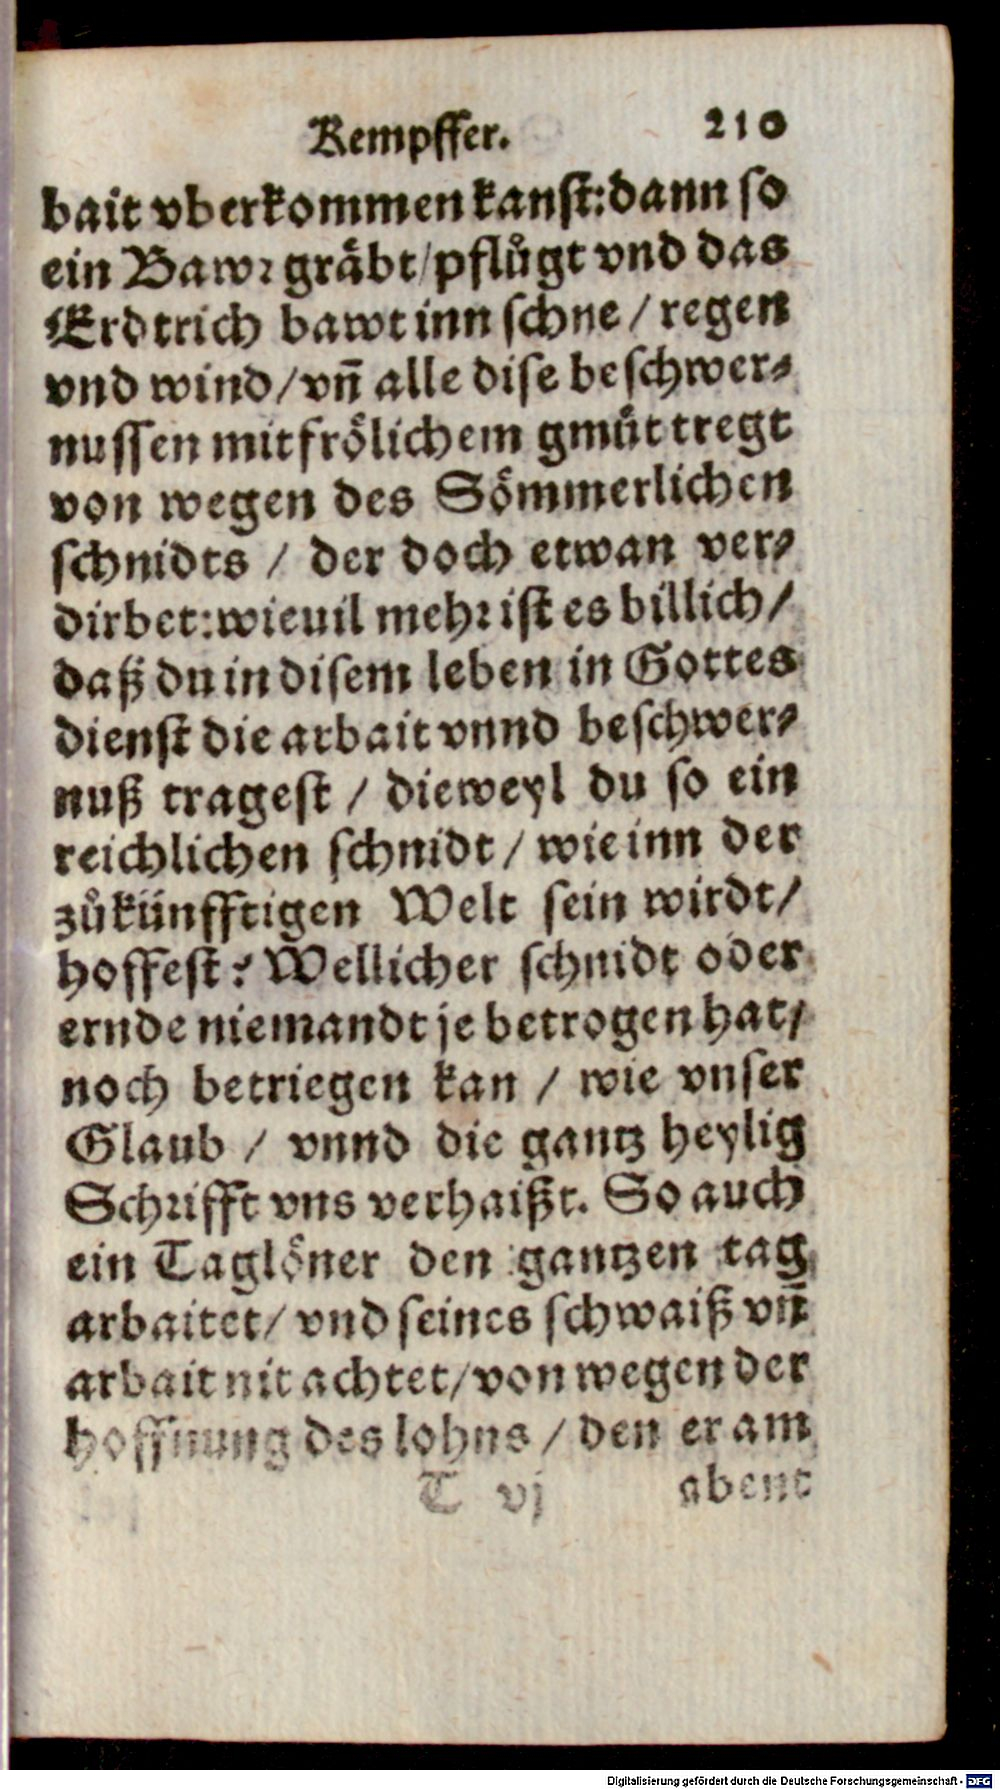 Kempffer. 210
bait vberkommen kanst: dann so
ein Bawr gräbt/ pflůgt vnd das
Erdtrich bawt inn schne / regen
vnd wind/ vn̄ alle dise beschwer⸗
nussen mit frölichem gmüt tregt
von wegen des Sömmerlichen
schnidts / der doch etwan ver⸗
dirbet: wieuil mehr ist es billich/
daß du in disem leben in Gottes
dienst die arbait vnnd beschwer⸗
nuß tragest / dieweyl du so ein
reichlichen schnidt / wie inn der
zůkünfftigen Welt sein wirdt/
hoffest? Wellicher schnidt oder
ernde niemandt je betrogen hat/
noch betriegen kan / wie vnser
Glaub / vnnd die gantz heylig
Schrifft vns verhaißt. So auch
ein Taglöner den gantzen tag
arbaitet/ vnd seines schwaiß vn̄
arbait nit achtet/ von wegen der
hoffnung des lohns / den er am
T vj abent
Digitalisierung gefördert durch die Deutsche Forschungsgemeinschaft - DFG